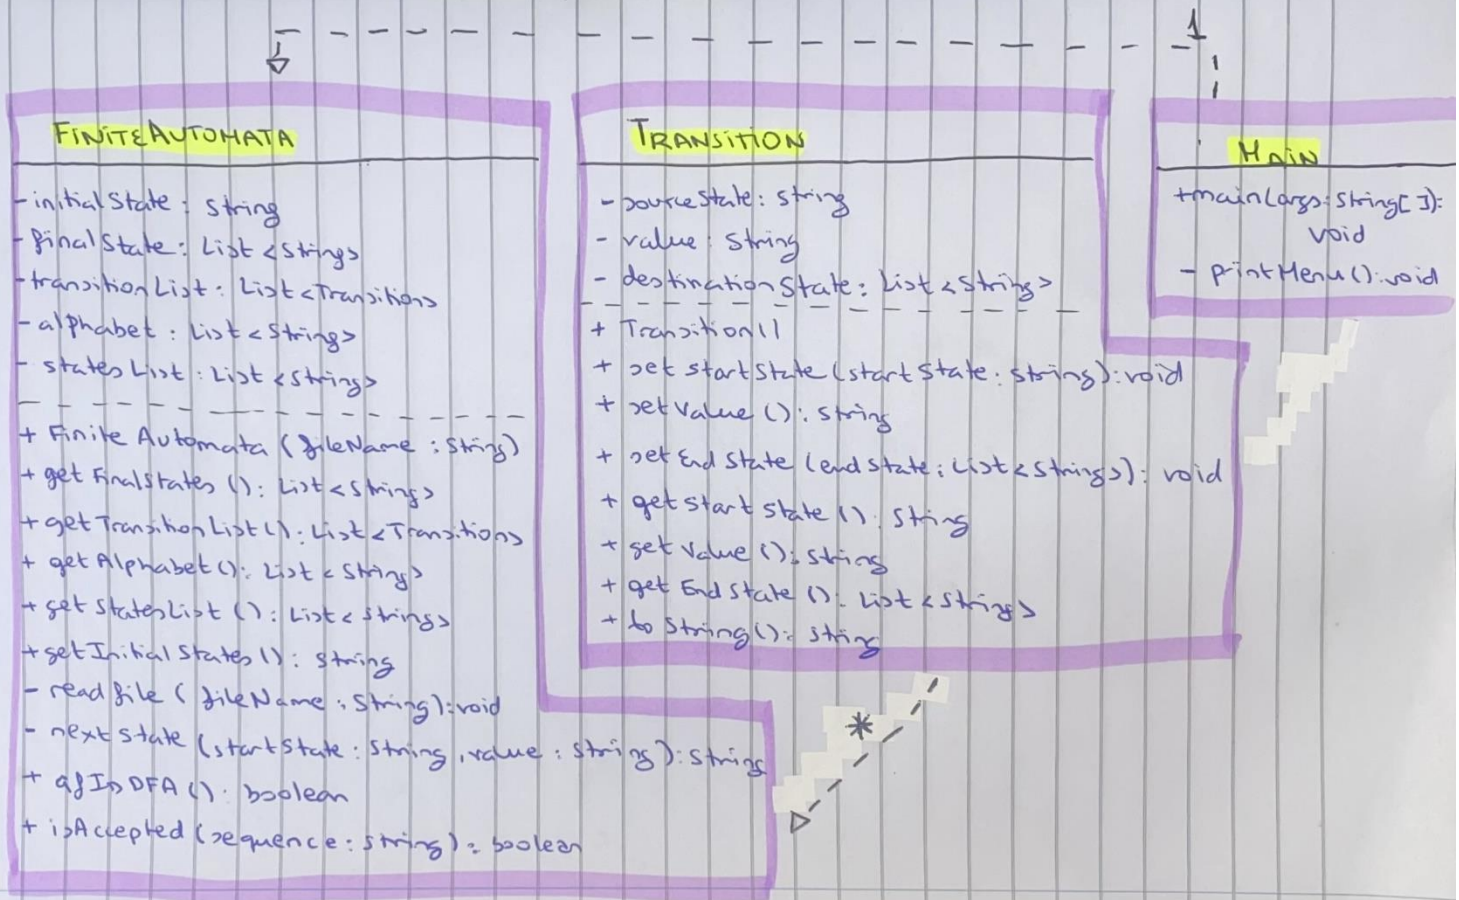 1
FINITEAUTOMATA
- initialState : String
- finalState : List <String>
- transitionList : List <Transition>
- alphabet : List <String>
- statesList : List <String>
+ Finite Automata (fileName : String)
+ getFinalStates () : List <String>
+ getTransitionList() : List <Transition>
+ getAlphabet() : List <String>
+ getStatesList () : List <String>
+ getInitialStates () : String
- readFile (fileName : String) : void
- nextState (startState : String, value : String) : String
+ afIsDFA () : boolean
+ isAccepted (sequence : String) : boolean
TRANSITION
- sourceState : String
- value : String
- destinationState : List <String>
+ Transition()
+ set startState (startState : String) : void
+ setValue () : String
+ set End State (endState : List <String>) : void
+ get start State () : String
+ get Value () : String
+ get EndState () : List <String>
+ to String() : String
MAIN
+main(args : String[]) :
void
- printMenu () : void
*